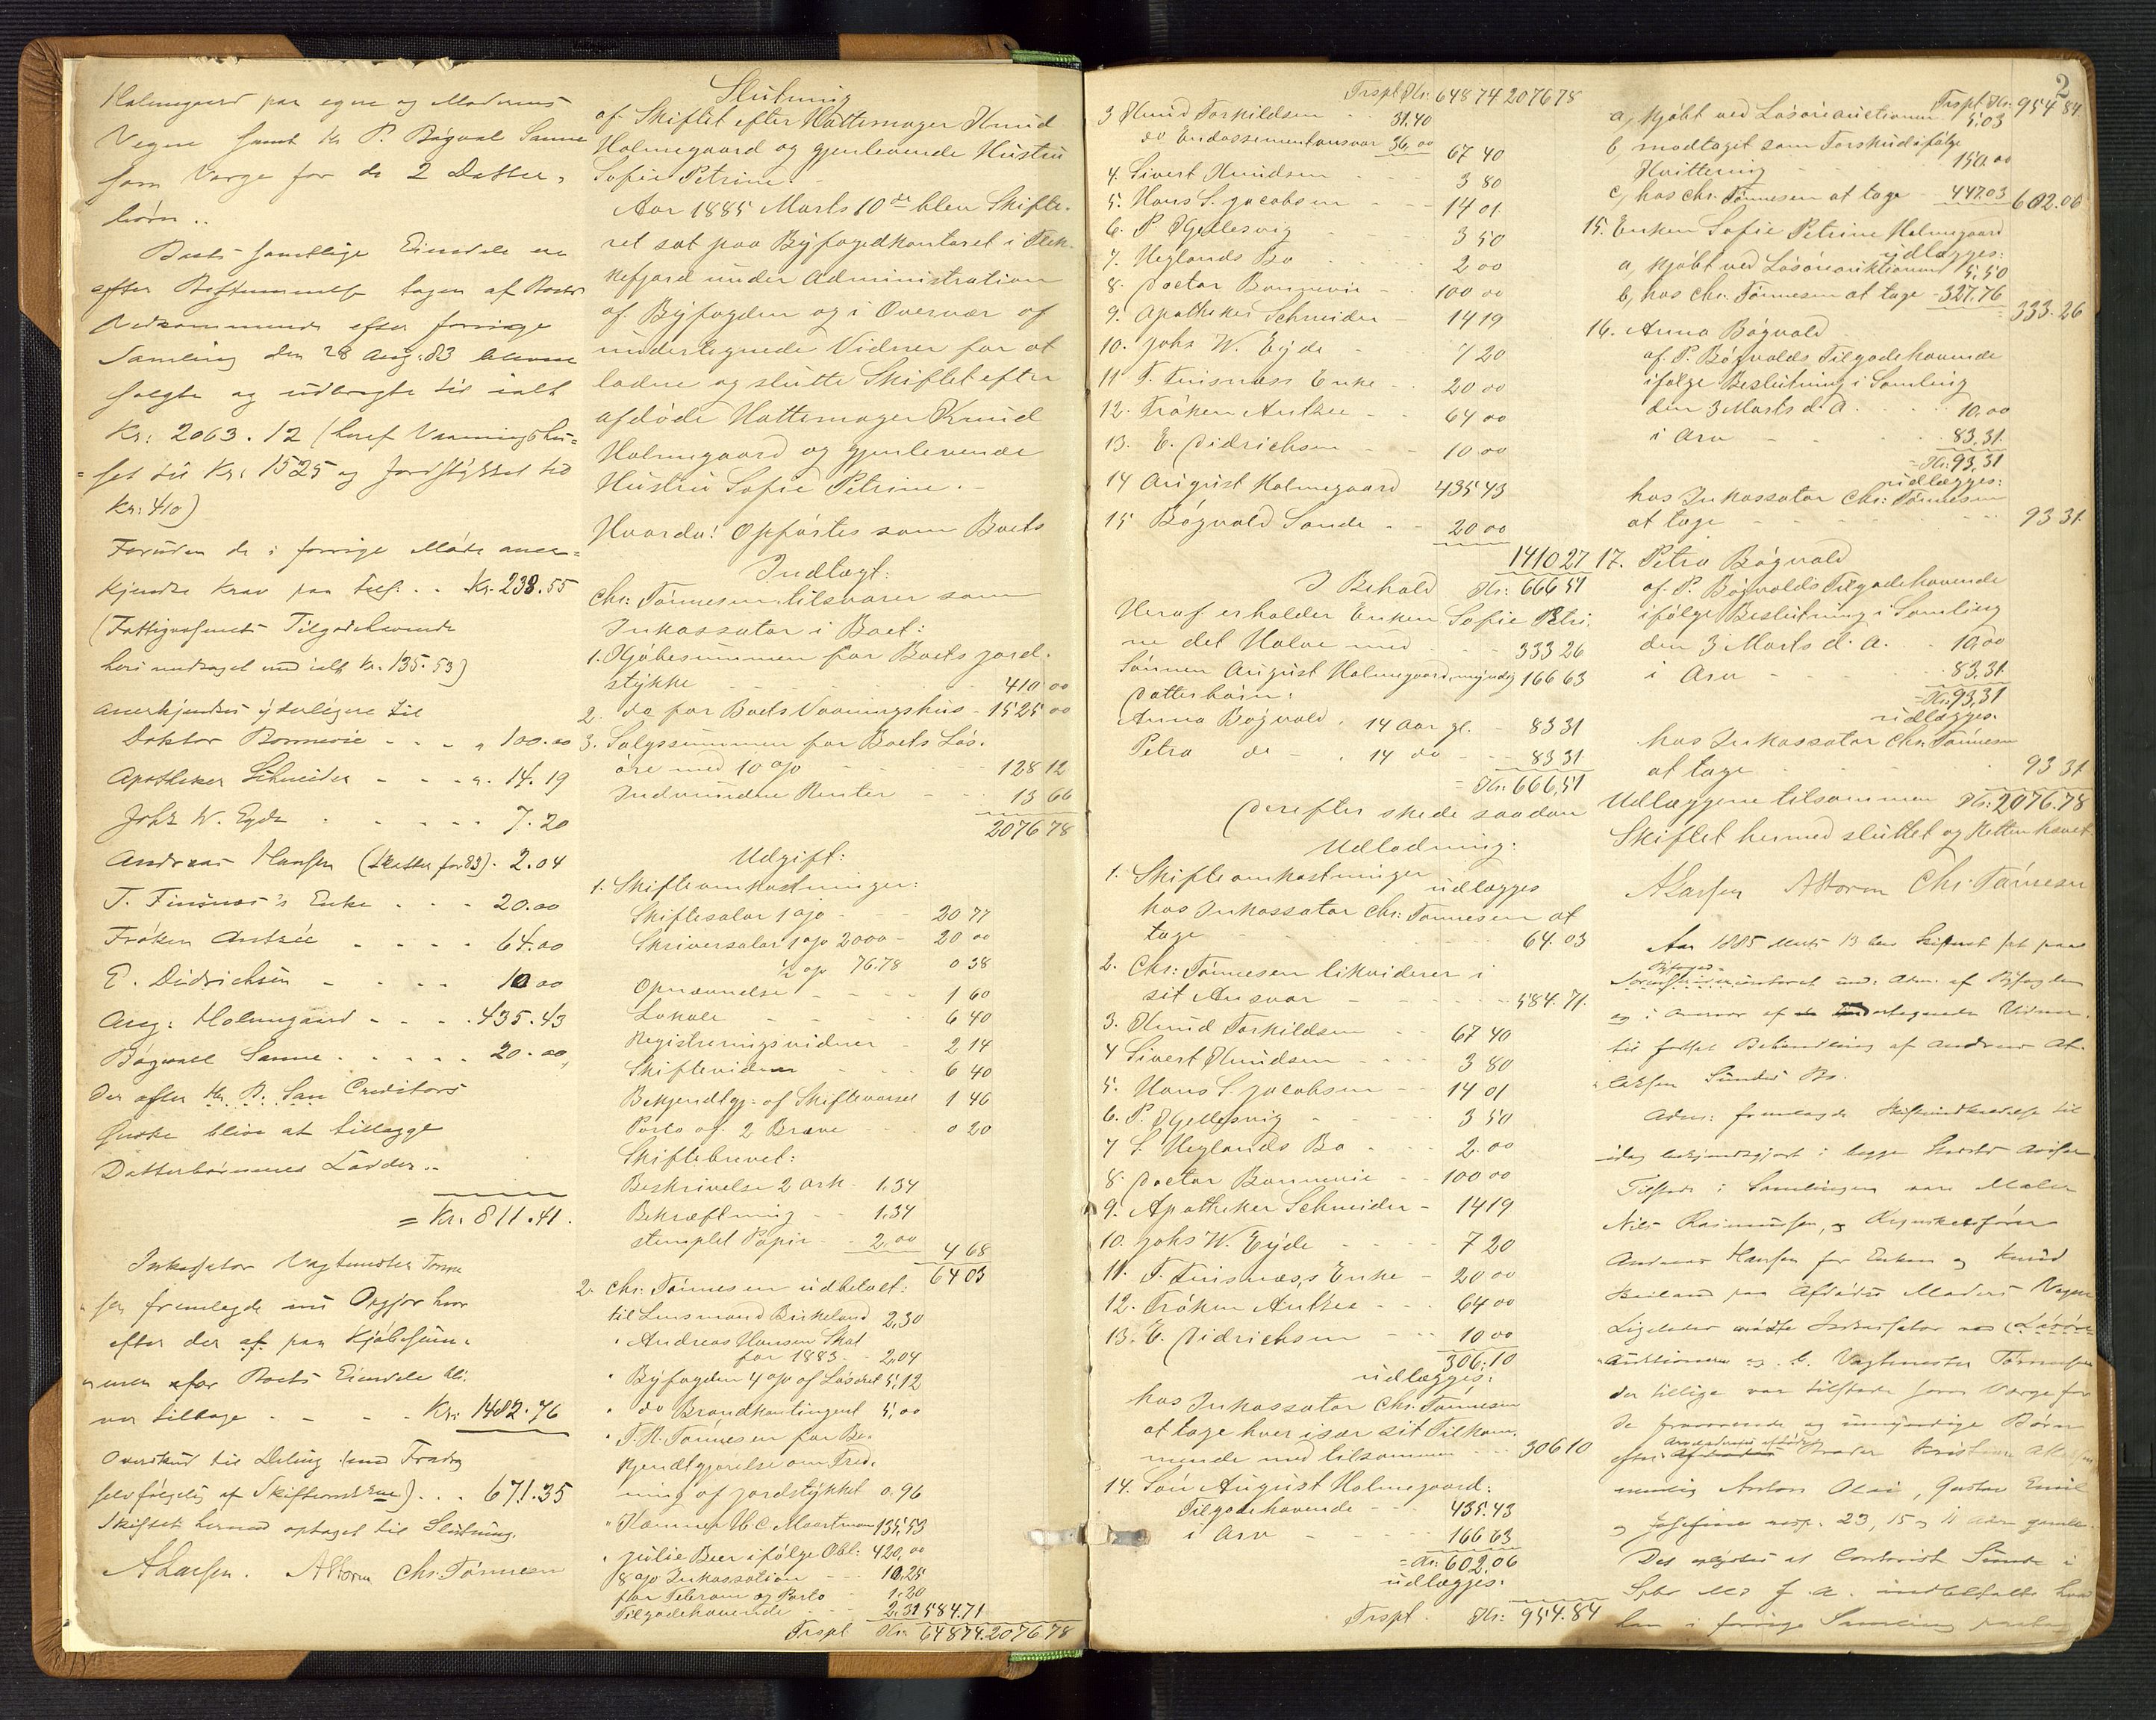 Holmegaard paa egne og Moderens
Vegne samt Hr P. Bøgvald Sanne
som Værge for de 2 Datter-
børn..
Boets samtlige Eiendele er
efter Bestemmelse tagen af Boets
Vedkommende efter forrige
Samling den 28 Aug: 83 blevne
solgte og udbragte til ialt
Kr: 2063.12 (heref Vaaningshu=
=set til Kr: 1525 og Jordstykket til
Kr: 410)
Foruden de i forrige Møde aner=
kjendte Krav paa tils. . . Kr. 238.55
(Fattigvæsenets Tilgodehavende
heri undtaget med ialt Kr. 135.53)
anerkjendtes yderligere til
Doktor Bonnevie - - - „ 100.00
Apotheker Schneider - - - „ 14.19
Johs W. Eyde . - - - - 7.20
Andreas Hansen (Skatter for 83). 2.04
T. Finsnæs's Enke . - - 20.00
Frøken Antzée - - - - 64.00
E. Didrichsen - - - - 10.00
Aug: Holmegaard - - - . 435.43
Bøgvald Sanne. - - - - - 20.00,
der efter Hr. B. San Creditors
Ønske blive at tillægge
Datterbørnenes Lodder..
= Kr. 811.41.
Inkassator Vagtmester Tønne
sen fremlagde nu Opgjør hvor
efter der af paa Kjøbesum-
men for Boets Eiendele bli-
ver tilbage . - - - . Kr: 1482.76
Overskud til Deling (med Fradrag
selvfølgelig af Skifteomk) . . . 671.35
Skiftet hermed optaget til Slutning.
ALarsen. AStorm Chr. Tønnesen
Slutning
af Skiftet efter Hattemager Knud
Holmegaard og gjenlevende Hustru
Sofie Petrine. -
Aar 1885 Marts 10de blev Skifte-
ret sat paa Byfogedkontoret i Flek-
kefjord under Administration
af Byfogden og i Overvær af
undertegnede Vidner for at
lodne og slutte Skiftet efter
afdøde Hattemager Knud
Holmegaard og gjenlevende
Hustru Sofie Petrine. -
Hvorda: Opførtes som Boets
Indtægt:
Chr: Tønnesen tilsvarer som
Inkassator i Boet:
1. Kjøbesummen for Boets Jord-
stykke - - - - - - 410 00
2. do for Boets Vaaningshus - 1525 00
3. Salgssummen for Boets Løs-
øre med 10 o/o - - - 128 12
Indvundne Renter - - - 13 66
2076 78
Udgift:
1. Skifteomkostninger:
Skiftesalær 1 o/o - - - 20 77
Skriversalær 1 o/o 2000 - 20 00
1/2 o/o 76.78 0 38
Opnævnelse - - - - 1 60
Lokale - - - - - 6 40
Registreringsvidner - 2 14
Skiftevidner - - - 6 40
Bekjendtg. af Skiftevarsel 1 46
Porto af 2 Breve - - - 0 20
Skiftebrevet:
Beskrivelse 2 Ark - 1.34
Bekræftning - - 1.34
stemplet Papir - - 2.00 4 68
64 03
2. Chr: Tønnesen udbetalt:
til Lensmand Birkeland 2.30
„ Andreas Hansen Skat
for 1883 - - 2.04
„ Byfogden 4 o/o af Løsøret 5.12
„ do Brandkontingent 5.00
„ T. H. Tønnesen for Be-
kjendtgjørelse om Fred-
ning af Jordstykket 0.96
„ Kæmner H C. Maartman 135.53
„ Julie Beer ifølge Obl: 420.00
8 o/o Inkassation - - - 10.25
for Telegram og Porto - 1.20
Tilgodehavende - - - 2.31 584.71
Trspt Kr. 648 74. 2076 78
2
Trspt Kr. 648 74 2076 78
3 Knud Torkildsen - - 31.40
do Endossementansvar 36.00 67 40
4. Sivert Knudsen - - - 3 80
5. Hans S. Jacobsen - - 14 01
6. P. Kjellesvig - - - 3 50
7. Heglands Bo - - - - 2 00
8. Doctor Bonnevie - - 100 00
9. Apotheker Schneider - 14 19
10. Johs W. Eyde - - 7 20
11 T. Finsnæss Enke - - 20 00
12. Frøken Antzee - - 64 00
13. E. Didrichsen - - - 10 00
14 August Holmegaard 435 43
15 Bøgvald Sande - - 20 00
1410 27
I Behold Kr: 666 51
Heraf erholder Enken Sofie Petri-
ne det Halve med - - - 333 26
Sønnen August Holmegaard, myndig 166 63
Datterbørn:
Anna Bøgvald. 14 Aar gl. - 83 31
Petra do - . 14 do - - 83 31
= Kr: 666,51
Derefter skede saadan
Udlodning:
1. Skifteomkostninger
udlægges
hos Inkassator Chr: Tønnesen at
tage - - - - - - 64.03
2. Chr: Tønnesen likviderer i
sit Ansvar - - - - - 584.71.
3. Knud Torkildsen - - 67 40
4 Sivert Knudsen - - - - 3 80
5. Hans S. Jacobsen - - 14 01
6. P. Kjellesvig - - - - 3 50
7 S. Heglands Bo - - - 2.00
8. Doctor Bonnevie - - 100 00
9. Apotheker Schneider - 14 19
10. Johs W. Eyde - - - - 7 20
11. T. Finsnæs,s Enke - 20 00
12. Frøken Antzee - - - 64 00
13. E. Didrichsen - - - 10 00
306.10
udlægges:
hos Inkassator Chr. Tønnesen
at tage hver især sit Tilkom-
mende med tilsammen - - - 306 10
14. Søn August Holmegaard:
Tilgodehavende - - - 435.43
i Arv - - - - - - 166 63
= Kr: 602.06
udlægges:
Trspt. Kr: 954.84
Trspt Kr: 954 84.
a, kjøbt ved Løsøreauctionen 5.03
b, modtaget som Forskud ifølge
Kvittering - - 150.00
c, hos Chr. Tønnesen at tage - 447.03 602.06
15. Enken Sofie Petrine Holmegaard
udlægges:
a, kjøbt ved Løsøreauktionen 5.50
b, hos Chr. Tønnesen at tage - 327.76
333.26
16. Anna Bøgvald
af P. Bøgvalds Tilgodehavende
ifølge Beslutning i Samling
den 3 Marts d. A. - - - 10.00
i Arv - - - - - 83,31.
= Kr: 93,31
udlægges:
hos Inkassator Chr: Tønnesen
at tage - - - - - - 93 31.
17. Petra Bøgvald
af P. Bøgvalds Tilgodehavende
ifølge Beslutning i Samling
den 3 Marts d. A. - 10.00
i Arv - - - - 83,31.
= Kr: 93,31
udlægges.
hos Inkassator Chr. Tønnesen
at tage - - - - 93 31
Udlæggene tilsammen Kr: 2076.78
Skiftet hermed sluttet og Retten hævet.
ALarsen AStorm Chr. Tønnesen
Aar 1885 Marts 13 blev Skifteret sat paa
Byfoged-
Sorenskriverkontoret und. Adm. af Byfogden
og i Overvær af undertegnede Vidner
til fortsat Behandling af Andreas At-
laksen Sundes Bo.
Adm: fremlagde Skifteindkaldelse til
idag bekjendtgjort i begge Stedets Aviser
Tilstede i Samlingen var Maler
Nils Rasmussen, og Regnskabsfører
Andreas Hansen for Enken og Knud
paa Afdødes Moders Vegne
Ligeledes mødte Inkassator ved Løsøre-
auktionen Vagtmester Tønnesen
der tillige var tilstede som Værge for
de fraværende og umyndige Børn
efter Broder Kristian
nemlig Anton Olai, Gustav Emil
og Josefine resp. 23, 15 og 11 Aar gamle.
Det oplystes at Contorist Sunde i
f. A. indbetalte hvad
han i forrige Samling